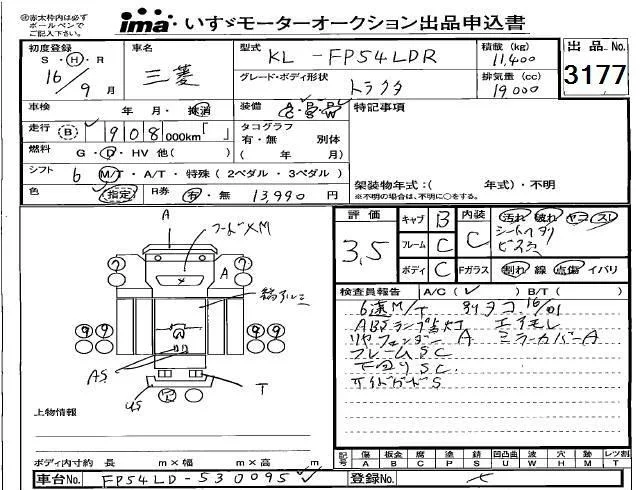 ①赤太枠内は必ず
ボールペンで
ご記入下さい。
ima いすゞモーターオークション出品申込書
初度登録
S・H・R
16/9月
車名
三菱
型式
KL - FP54LDR
グレード・ボディ形状
トラクタ
積載 (kg)
11,400
排気量 (cc)
19000
出品No.
3177
車検 年 月・抹消
装備 A・P・P
C・S・W
特記事項
走行 B 908 000km「 」
タコグラフ
有・無 別体
( 年 月)
燃料 G・D・HV 他( )
シフト 6 M/T・A/T・特殊 (2ペダル・3ペダル)
色 (指定) R券 有・無 13,990 円
架装物年式:( 年式)・不明
※不明の場合は、不明に○をする。
評価 3.5
キャブ B
フレーム C
ボディ C
内装 C
汚れ 破れ ヤコゲ スレ
シートヘタリ
ビス穴
Fガラス 割れ 線 点傷 イバリ
検査員報告 A/C(✓) B/T( )
6速M/T
ABSランプ点灯
リヤフェンダー A ミラーカバーA
フレームSC
下回りSC
サイドガードS
A
フードXM
A
縞アルミ
AS
US
T
上物情報
ボディ内寸約 長 m×幅 m×高 m
記号 傷 板金 腐 塗 錆 凹凸曲 波 穴 跡 レツ割
A B C P S U W H M T
車台No. FP54LD-530095
登録No.